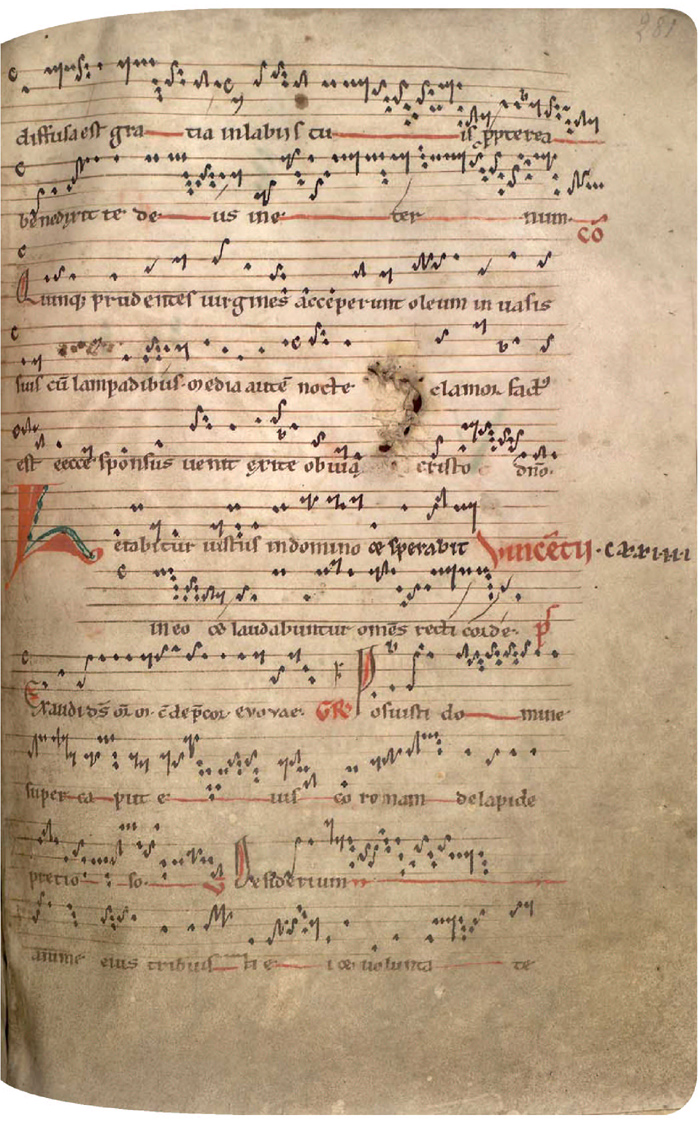 281
diffusa est gra tia in labiis tu is ppterea
benedixit te de us in e ter num. CO
Quinq; prudentes uirgines acceperunt oleum in uasis
suis cū lampadibus. media autē nocte clamor fact'
est eecce sponsus uenit exite obuiā cristo dn̄o.
Letabitur iustus in domino & sperabit Vincētii.
in eo & laudabuntur omēs recti corde. ps
Exaudi d̄s or̄ m̄. c̄ dep̄cor. evovae. GR Posuisti do mine
super ca put e ius co ro nam de lapide
pretio so. V Desiderium
anime eius tribuisti e i & uolunta te